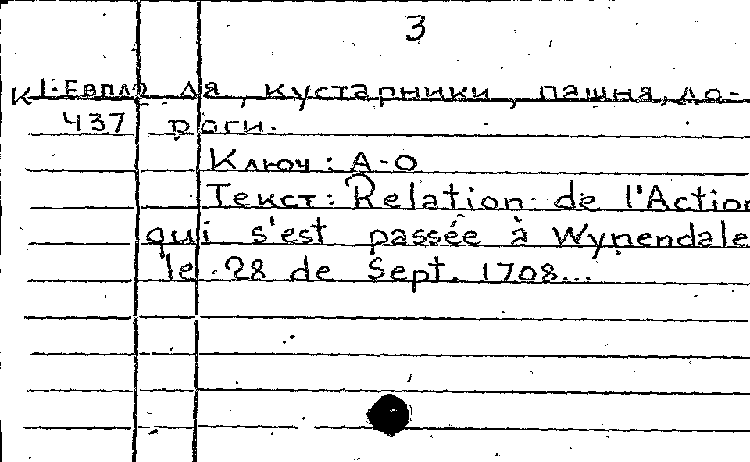 3
К 1-Евпл2 ля, кустарники, пашня, до-
437 роги.
Ключ: А-О
Текст: Relation de l'Action
qui s'est passée à Wynendale
le 28 de Sept. 1708...